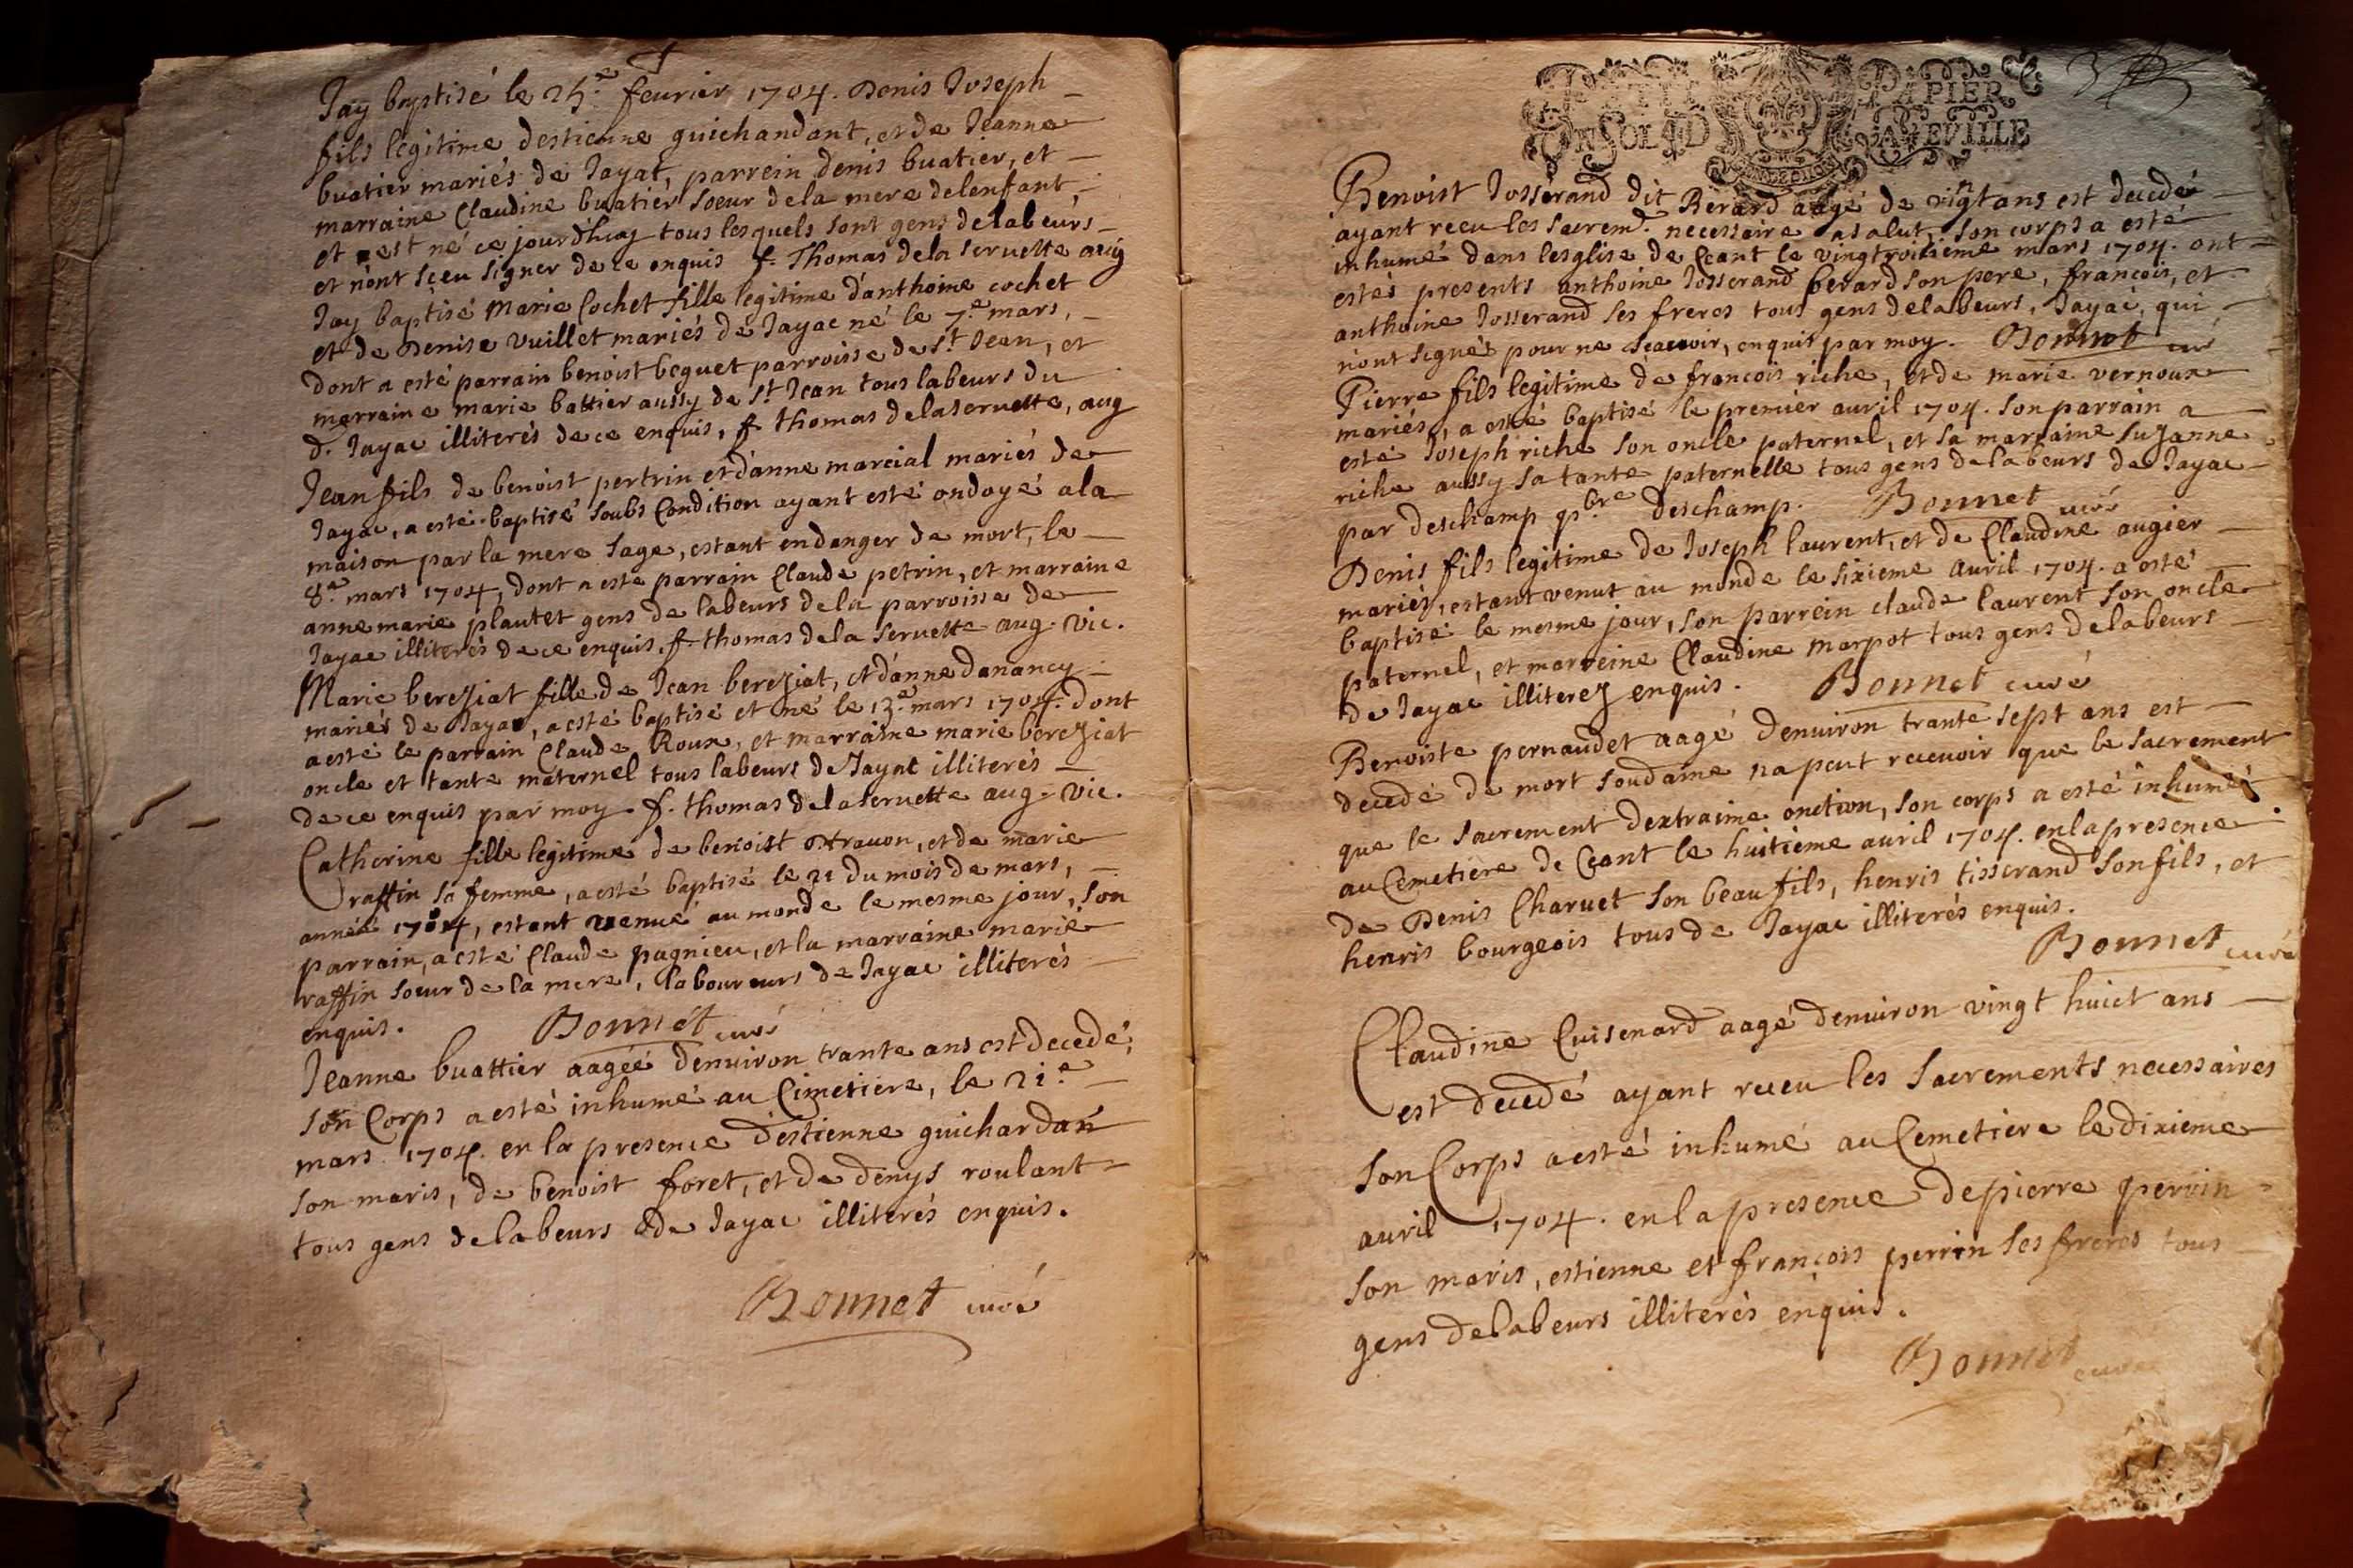 Jay baptisé le 25.e feurier 1704. Denis Joseph
fils legitime destienne guichandant, et de Jeanne
buatier mariés de Jayat, parrein denis buatier, et
marraine Claudine buatier soeur de la mere delenfant
et est né ce jourdhuy tous lesquels sont gens de labeurs
et n'ont sçeu signer de ce enquis f. Thomas dela seruette aug
Jay baptisé Marie Cochet fille legitime d'anthoine cochet
et de Denise Vuillet mariés de Jayac né le 7.e mars,
dont a esté parrain benoist beguet parroisse de St Jean, et
marraine marie battier aussy de St Jean tous labeurs du
d. Jayac illiterés de ce enquis, f. thomas dela seruette, aug
Jean fils de benoist pertrin et d'anne marcial mariés de
Jayac, a esté baptisé soubs Condition ayant esté ondoyé a la
maison par la mere sage, estant endanger de mort, le
8.e mars 1704, dont a esté parrain Claude petrin, et marraine
anne marie plautet gens de labeurs dela parroisse de
Jayac illiterés de ce enquis. f. thomas dela seruette aug. vic.
Marie bereziat fille de Jean bereziat, et d'anne danancy
mariés de Jayac, a esté baptisé et né le 13.e mars 1704. dont
a esté le parrain Claude Roux, et marraine marie bereziat
oncle et tante maternel tous labeurs de Jayat illiterés
de ce enquis par moy f. thomas dela seruette aug. vic.
Catherine fille legitime de benoist trauon, et de marie
raffin sa femme, a esté baptisé le 21 du mois de mars,
année 1704, estant venue au monde le mesme jour, son
parrain, a esté Claude pagnieu, et la marraine marie
raffin soeur de la mere, laboureurs de Jayac illiterés
enquis. Bonnet curé
Jeanne buattier aagéé denuiron trante ans est decedé,
son Corps a esté inhumé au Cimetiere, le 21.e
mars 1704. en la presence destienne guichardan
son maris, de benoist foret, et de denys roulant
tous gens de labeurs de Jayac illiterés enquis.
Bonnet curé
PETIT PAPIER
UN SOL 4 D LA FEVILLE
Benoist Josserand dit Berard aagé de vingt ans est decedé
ayant receu les sacremt. necessaire asalut, son corps a esté
inhumé dans lesglise de Ceant le vingtroisieme mars 1704. ont
estés presents anthoine Josserand berard son pere, francois, et
anthoine Josserand ses freres tous gens de labeurs, Jayac, qui
n'ont signés pour ne scauoir, enquis par moy. Bonnet curé
Pierre fils legitime de francois riche, et de marie vernoux
mariés, a esté baptisé le premier auril 1704. son parrain a
esté Joseph riche son oncle paternel, et sa marraine suzanne
riche aussy sa tante paternelle tous gens de labeurs de Jayac
par deschamp pbre deschamp. Bonnet curé
Denis fils legitime de Joseph laurent, et de Claudine augier
mariés, estant venut au monde le sixieme auril 1704. a esté
baptisé le mesme jour, son parrein claude laurent son oncle
paternel, et marreine Claudine marpot tous gens de labeurs
de Jayac illiterez enquis. Bonnet curé
Benoiste pernaudet aagé denuiron trante sept ans est
decedé de mort soudaine na peut receuoir que le sacrement
que le sacrement dextraime onction, son corps a esté inhumé
au Cemetiere de Ceant le huitieme auril 1704. en la presence
de Denis Charuet son beau fils, henris tisserand son fils, et
henris bourgeois tous de Jayac illiterés enquis.
Bonnet curé
Claudine Cuisenard aagé denuiron vingt huict ans
est decedé ayant receu les sacrements necessaires
son Corps a esté inhumé au Cemetiere le dixieme
auril 1704. en la presence de pierre perrin
son maris, estienne et françois perrin ses freres tous
gens de labeurs illiterés enquis.
Bonnet curé